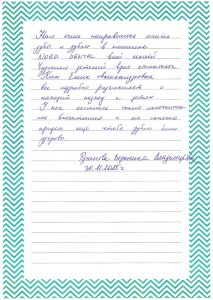 Нам очень понравилось лечить
зубы и дёсны в клинике
NORD DENTAL всей семьёй
детский врач стоматолог
Ким Елена Александровна
все подробно разъясняет и
находит подход к детям
У нас остаются только положительные
впечатления и мы только
придём ещё чтобы зубки были
здоровы
Вероника Владимировна
30.11.2025 г.